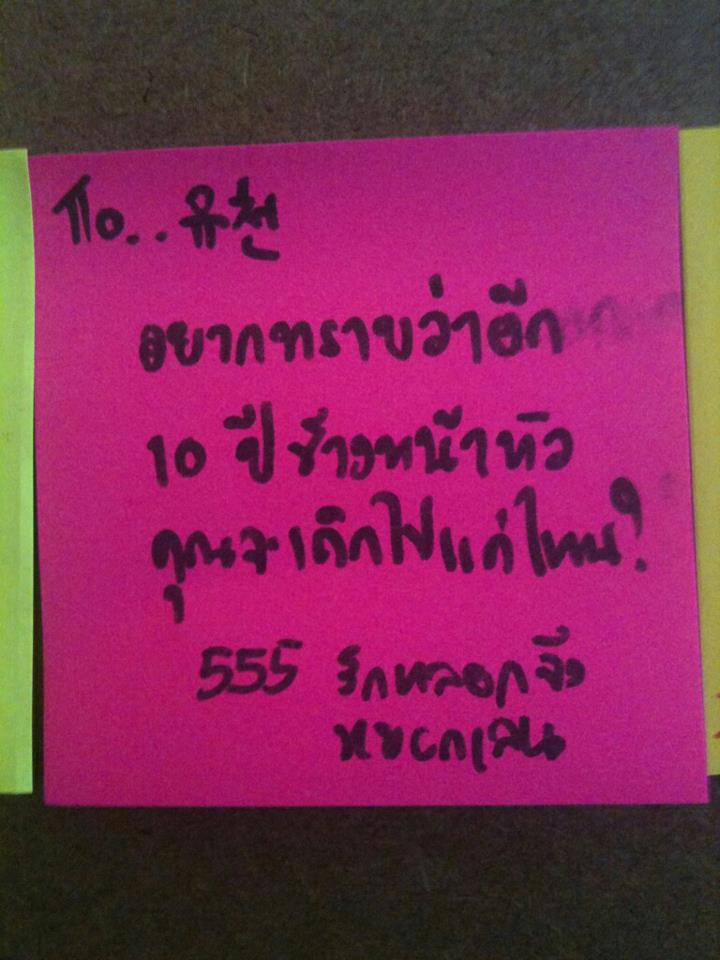 To.. 유천
อยากทราบว่าอีก
10 ปีข้างหน้าหัว
คุณจะเถิกไปแค่ไหน?
555 รักหลอกจึง
หยอกเล่น